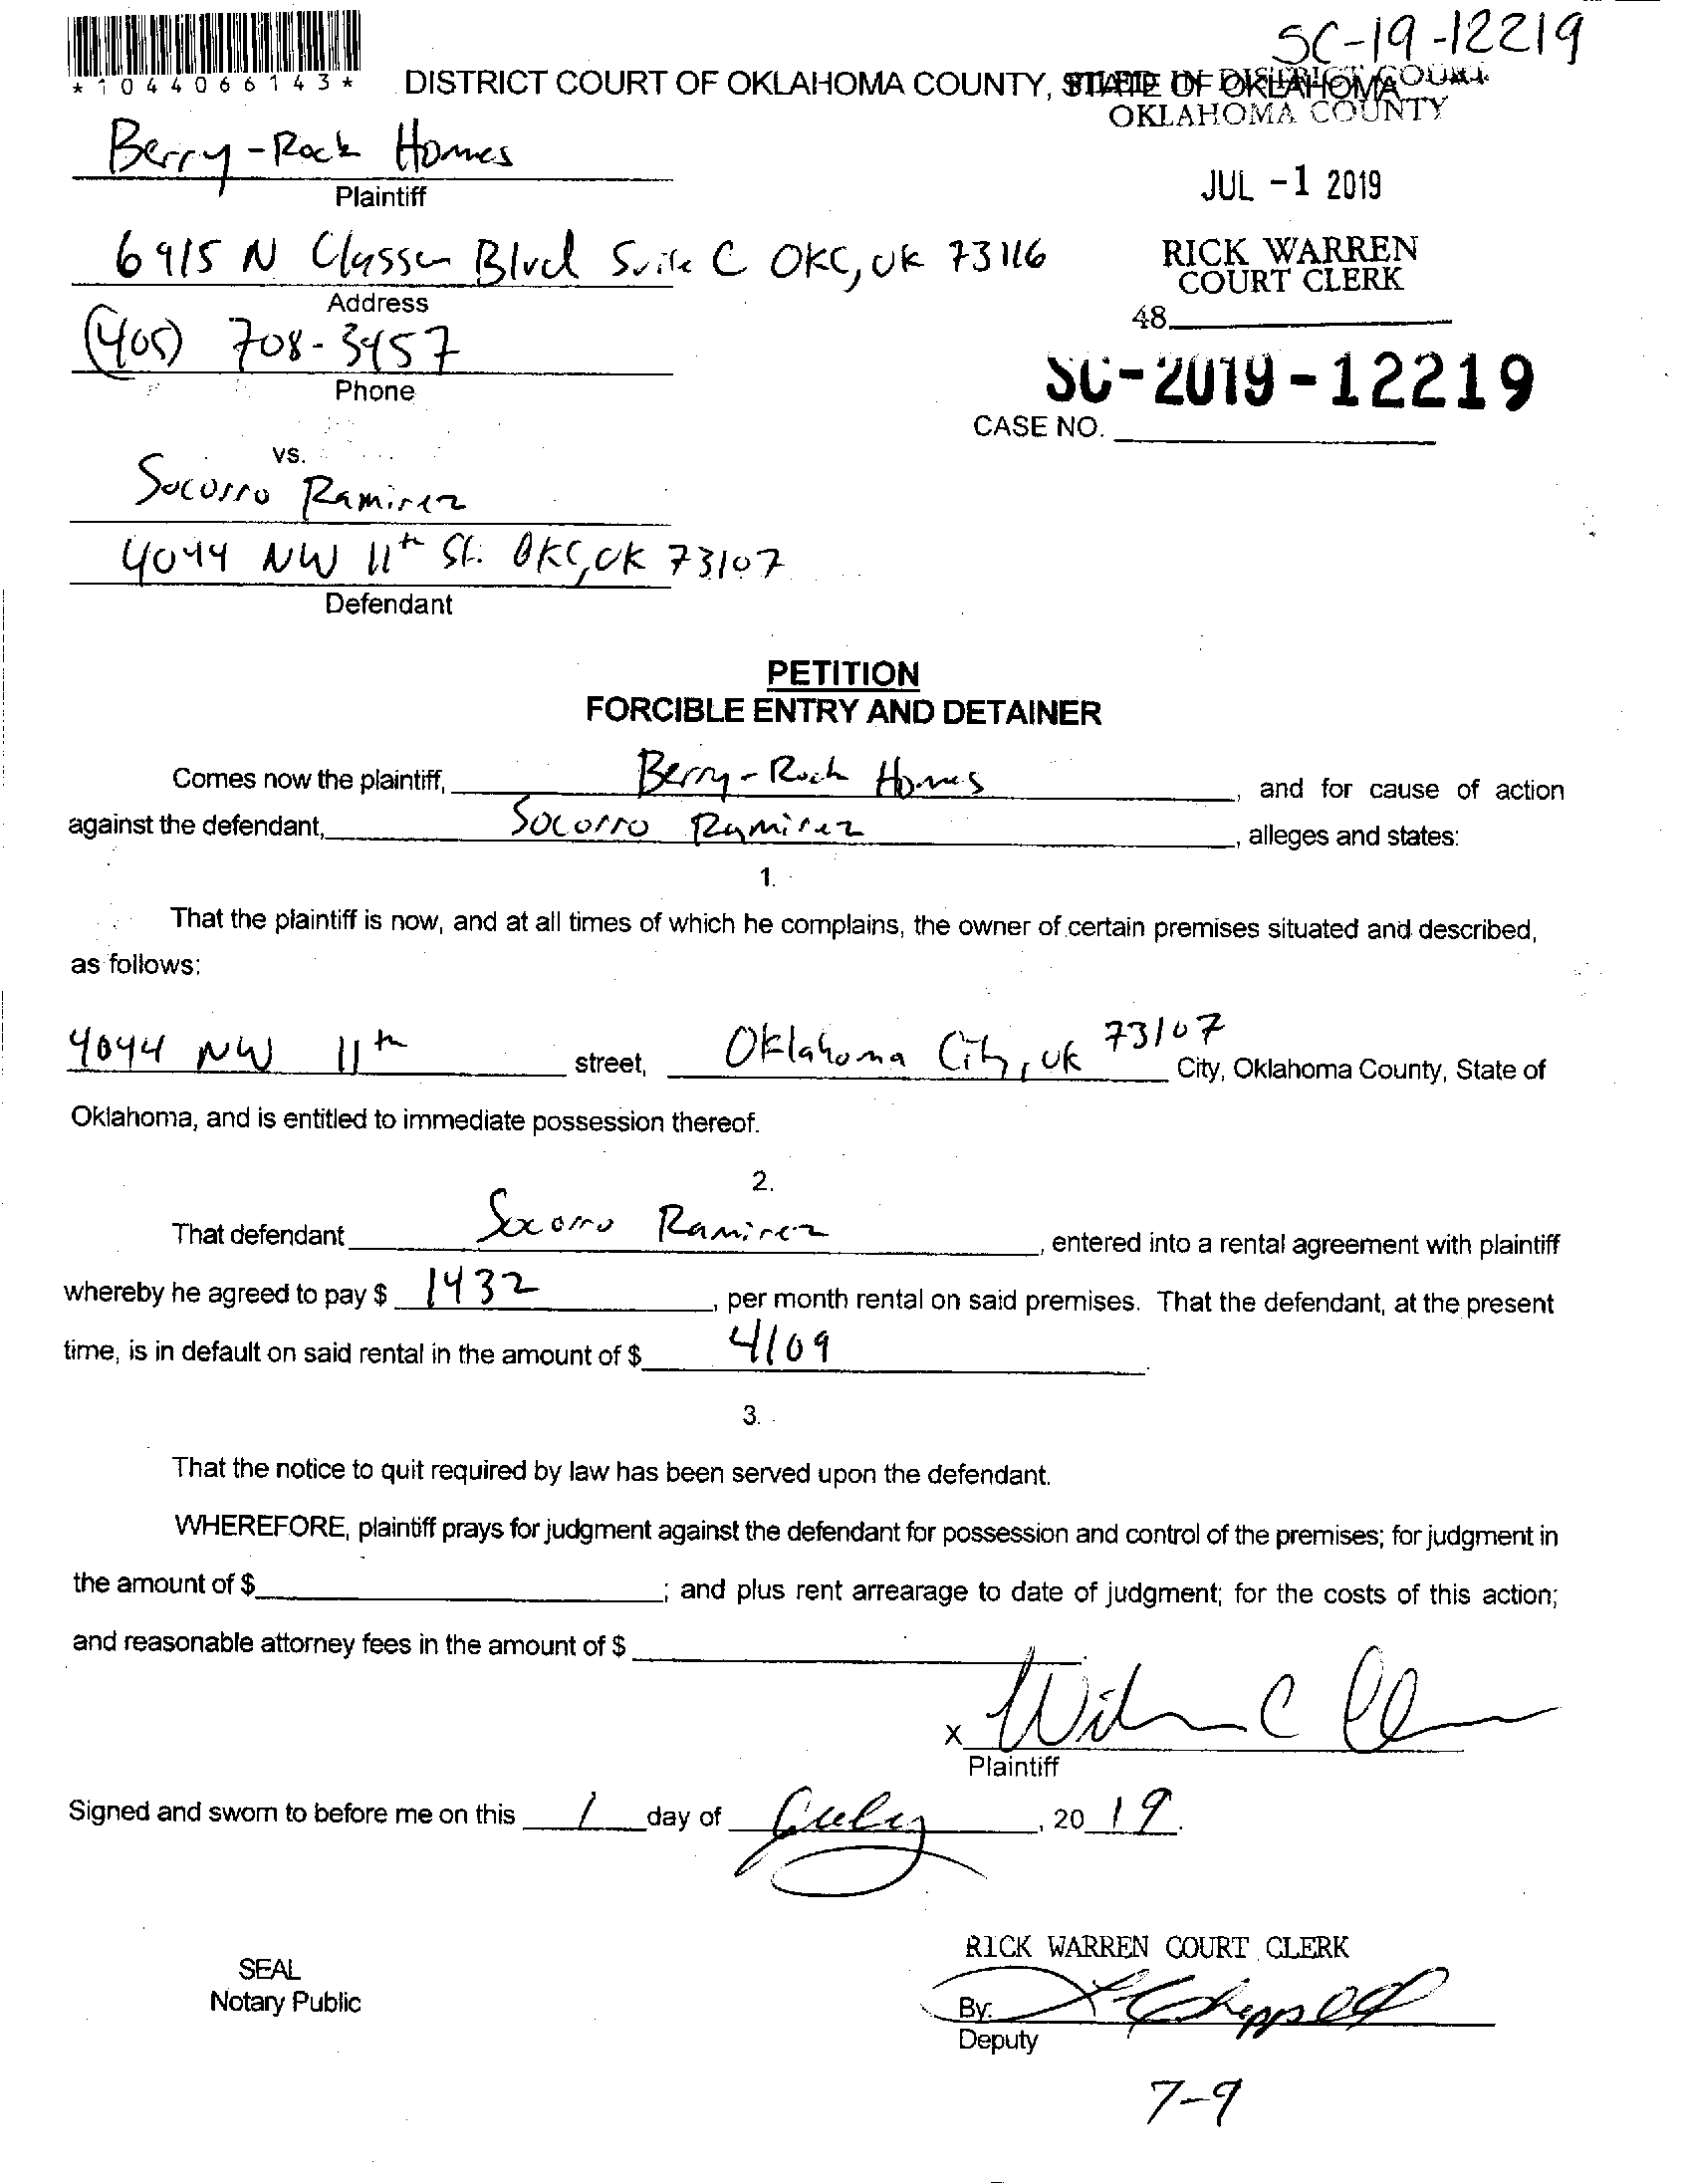 SC-19-12219
*1044066143*
DISTRICT COURT OF OKLAHOMA COUNTY, STATE OF OKLAHOMA
FILED IN DISTRICT COURT
OKLAHOMA COUNTY
Berry-Rock Homes
Plaintiff
JUL -1 2019
6915 N Classen Blvd Suite C OKC, OK 73116
RICK WARREN
COURT CLERK
Address
48
(405) 708-3457
Phone
SC-2019-12219
CASE NO.
vs.
Socorro Ramirez
4044 NW 11th St. OKC, OK 73107
Defendant
PETITION
FORCIBLE ENTRY AND DETAINER
Comes now the plaintiff, Berry-Rock Homes, and for cause of action
against the defendant, Socorro Ramirez, alleges and states:
1.
That the plaintiff is now, and at all times of which he complains, the owner of certain premises situated and described,
as follows:
4044 NW 11th street, Oklahoma City, OK 73107 City, Oklahoma County, State of
Oklahoma, and is entitled to immediate possession thereof.
2.
That defendant Socorro Ramirez, entered into a rental agreement with plaintiff
whereby he agreed to pay $ 1432, per month rental on said premises. That the defendant, at the present
time, is in default on said rental in the amount of $ 4109.
3.
That the notice to quit required by law has been served upon the defendant.
WHEREFORE, plaintiff prays for judgment against the defendant for possession and control of the premises; for judgment in
the amount of $ ; and plus rent arrearage to date of judgment; for the costs of this action;
and reasonable attorney fees in the amount of $
X
Plaintiff
Signed and sworn to before me on this 1 day of July, 2019.
RICK WARREN COURT CLERK
SEAL
Notary Public
By:
Deputy
7-9